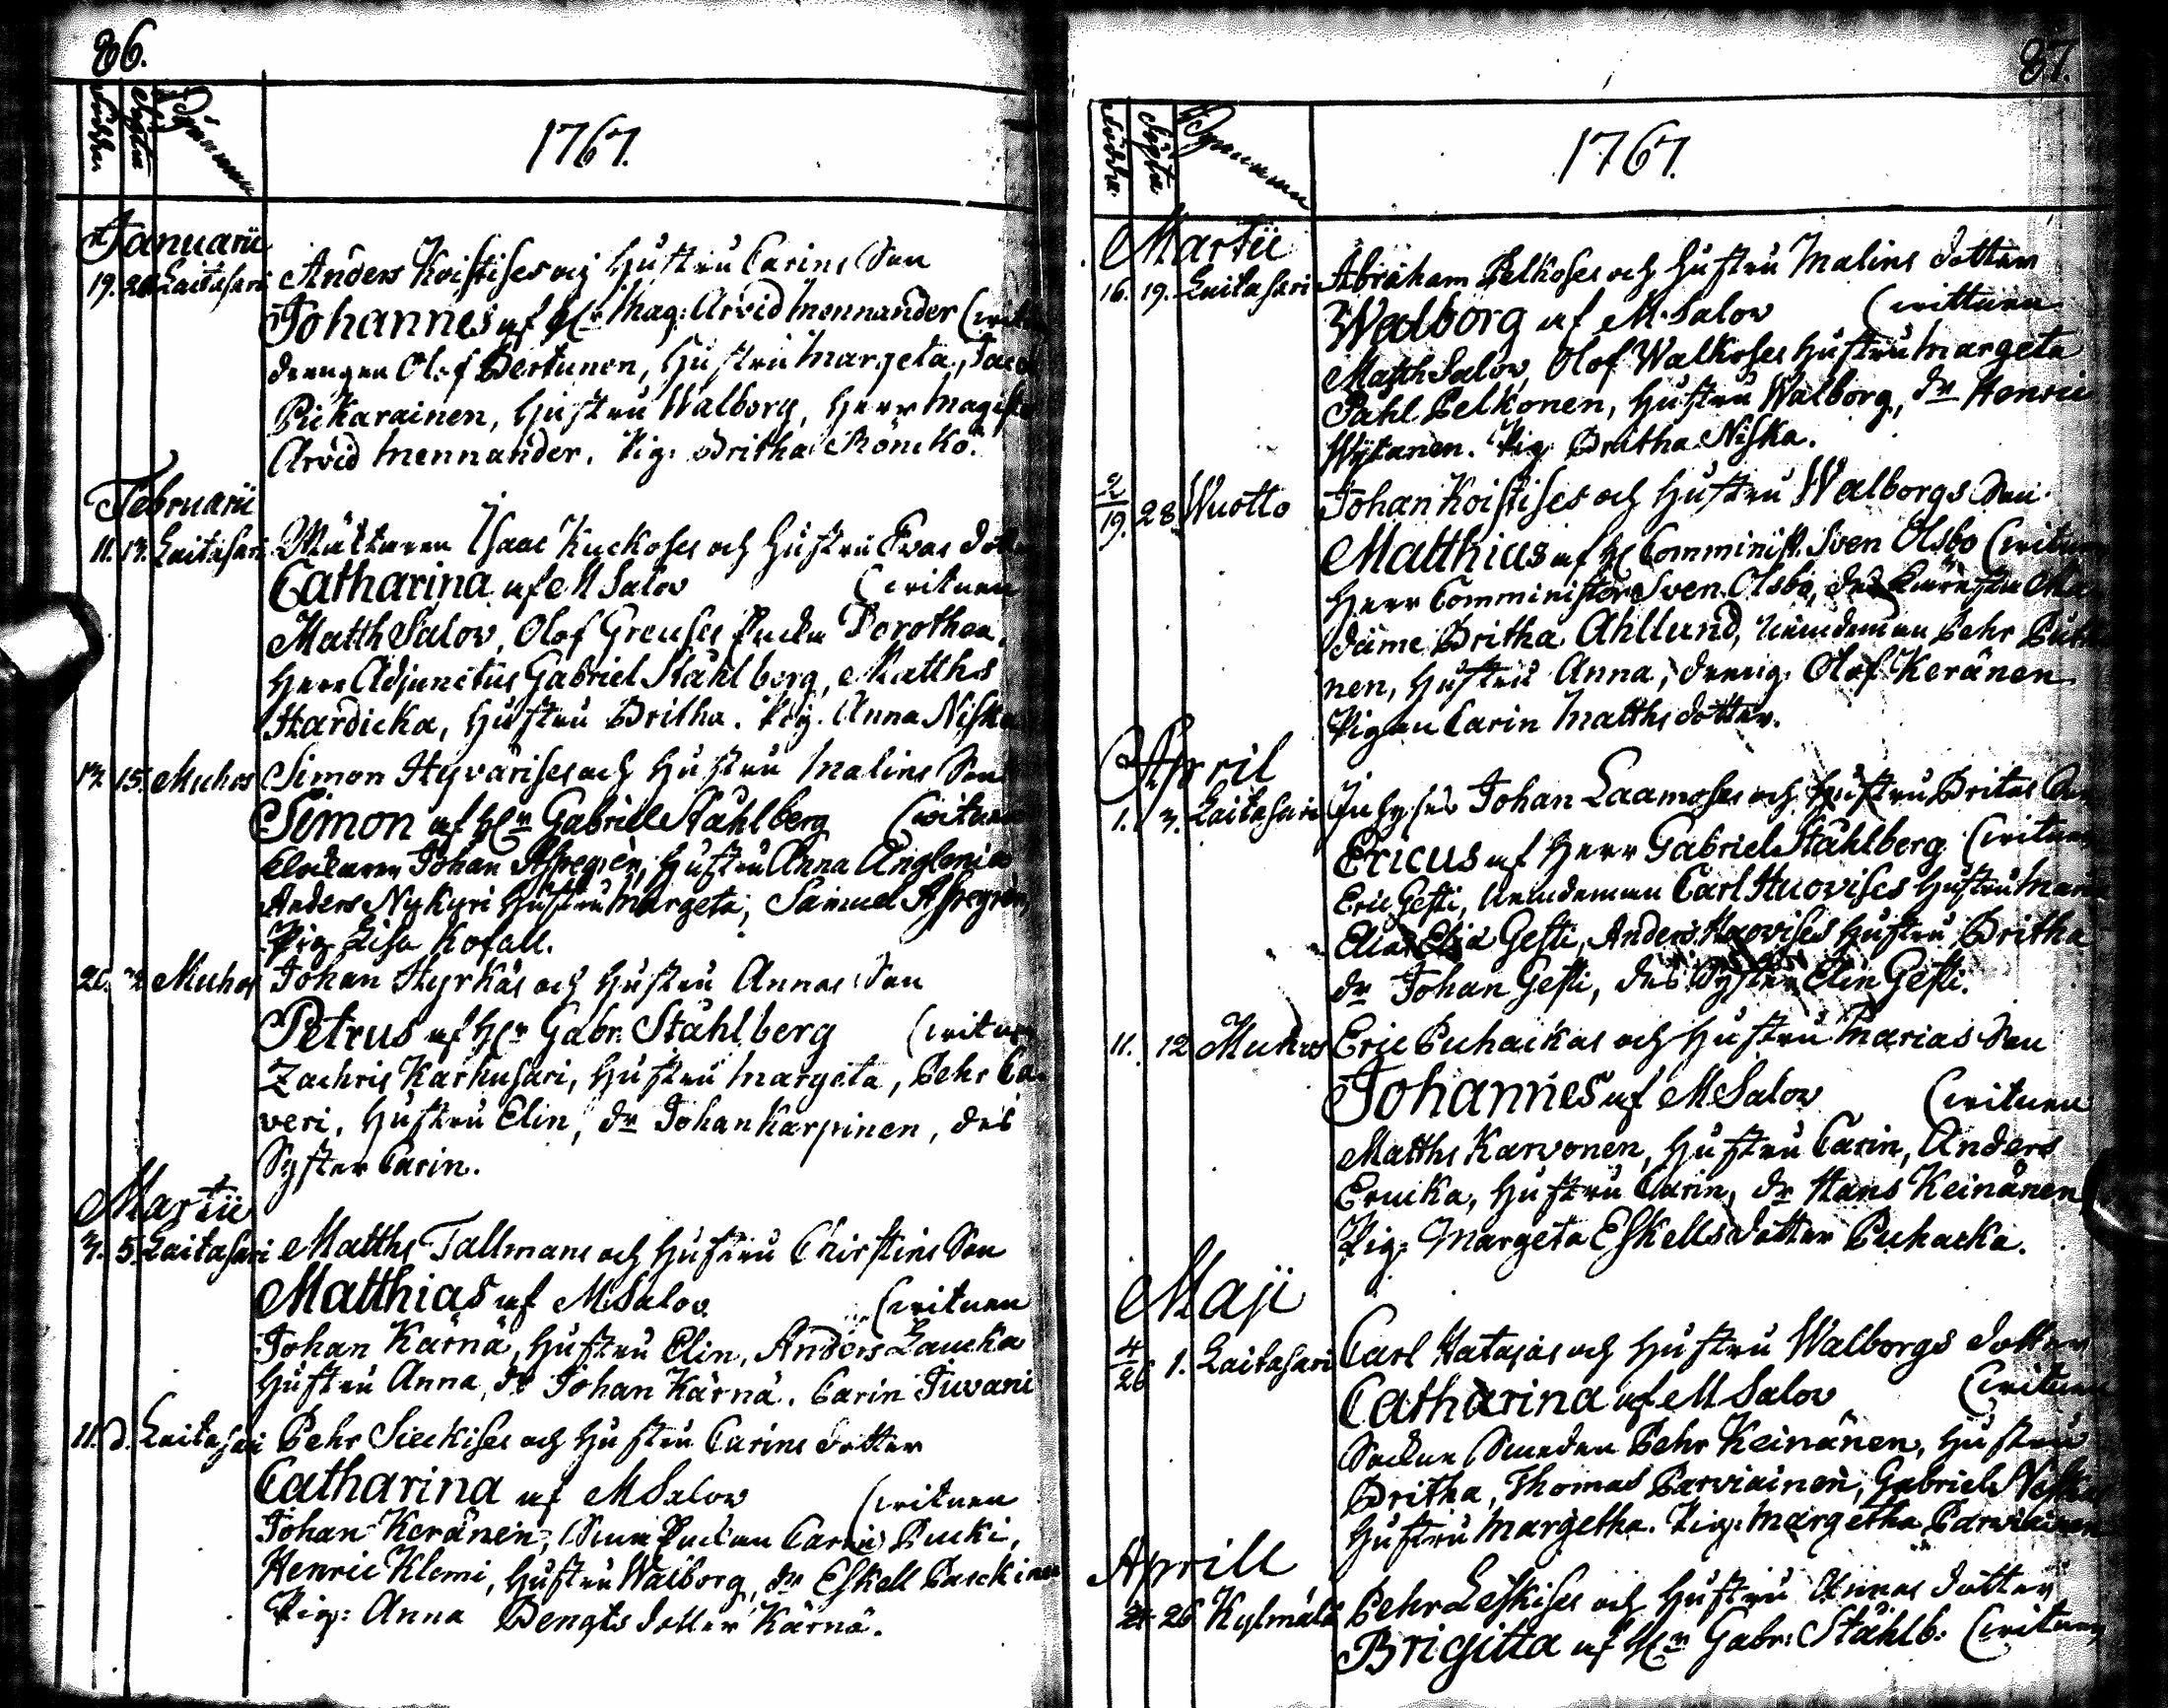 86.
Födde. Döpte Bynamn
1767.
Januarii
19. 20. Laitasari Anders Koistises och Hustru Carins Son
Johannes af Hr Mag: Arvid Mennander (witn
Drengen Olof Bertunen, Hustru Margeta, Jacob
Pickarainen, Hustru Walborg, Herr Magist
Arvid Mennander. Pig: Britha Rönckö.
Februarii
11. 13. Laitasari Måltaren Isaac Kuckoses och Hustru Evas dott
Catharina af M Salov (witnen
Matth Salov, Olof Greuses Enka Dorothea,
Herr Adjunctus Gabriel Ståhlberg, Matths
Hardicka, Hustru Britha. Pig. Anna Niska
13. 15. Muhos Simon Hyvärises och Hustru Malins Son
Simon af Hr Gabriel Ståhlberg (witnen
Clockaren Johan Aspegrèn, Hustru Anna Anglenia
Anders Nykyri Hustru Margeta, Samuel Aspegrèn,
Pig. Lisa Kofall.
Muhos Johan Hyrkäs och Hustru Annas Son
Petrus af Hr Gabr: Ståhlberg (witnen
Zachris Karhusari, Hustru Margeta, Pehr Ca-
veri, Hustru Elin, dr Johan Karpinen, des
Syster Carin.
Martii
3. 5. Laitasari Matths Tallmans och Hustru Christins Son
Matthias af M Salov (witnen
Johan Kärnä, Hustru Elin, Anders Laucka
Hustru Anna, dr Johan Kärnä. Carin Juvani
11. d. Laitasari Pehr Sieckises och Hustru Carins dotter
Catharina af M Salov (witnen
Johan Keränen, Carin Pucki,
Henric Klemi, Hustru Walborg, dr Eskell Paeckinen
Pig: Anna Bengts dotter Kärnä.
87.
Födde. Döpte Bynamn
1767.
Martii
16. 19. Laitasari Abraham Pelkoses och Hustru Malins dotter
Walborg af M Salov (wittnen
Matth Salov, Olof Walkoses Hustru Margeta
Påhl Pelkonen, Hustru Walborg, dr Henric
Wÿtanen. Pig. Britha Niska.
2/19. 28 Wuotto Johan Koistises och Hustru Walborgs Son
Matthias af H Comminist. Sven Olsbo (witnen
Herr Comminister Sven Olsbo, des Käresta Ma
dame Britha Ahllund, Nämdeman Pehr
nen, Hustru Anna, dreng. Olof Keränen
Pigan Carin Matths dotter.
April
1. 3. Laitasari Inhyses Johan Laamoses och Hustru Britas Son
Ericus af Herr Gabriel Ståhlberg (witnen
Eric Gesti, Nemdeman Carl Huovises Hustru Maria
Elias Gesti, Anders Huovises Hustru Britha
dr Johan Gesti, des Syster Elin Gesti.
11. 12 Muhos Eric Puhackas och Hustru Marias Son
Johannes af M Salov (witnen
Matths Karvonen, Hustru Carin, Anders
Ervicka, Hustru Carin, dr Hans Keinänen
Pig: Margeta Eskells dotter Puhacka.
Maji
4/26 1. Laitasari Carl Hatajas och Hustru Walborgs dotter
Catharina af M Salov (witnen
Sockne Smeden Pehr Keinänen, Hustru
Britha, Thomas Parviainen, Gabriel
Hustru Margetha. Pig: Margetha Parviainen
Aprill
24 26 Kylmälä Pehr Leskises och Hustru Annas dotter
Brigitta af Hr Gabr: Ståhlb: (witnen